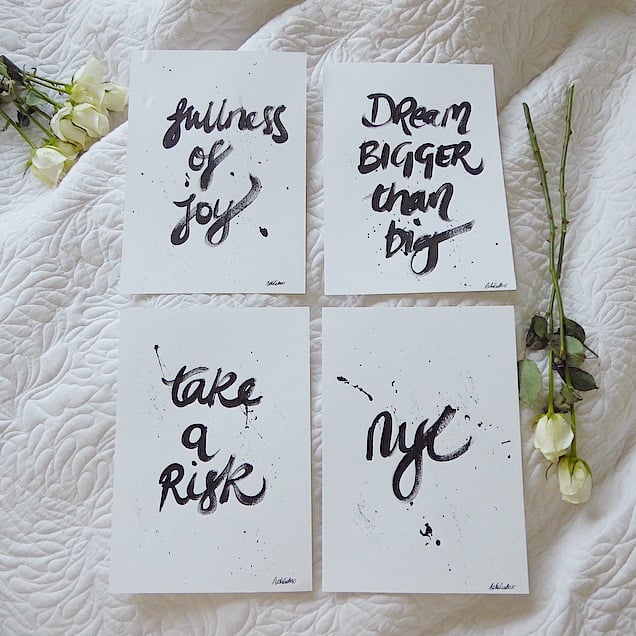 fullness
of
joy
DReam
BIGGER
than
big
take
a
Risk
nyc